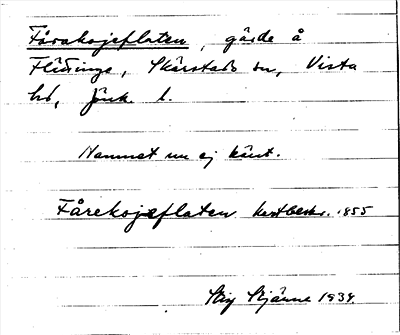 Fårakojeflaten, gärde å
Flättinge, Skärstads sn, Vista
hd, Jönk. l.
Namnet nu ej känt.
Fårekojeflaten kartbeskr. 1855
Stig Stjärne 1934